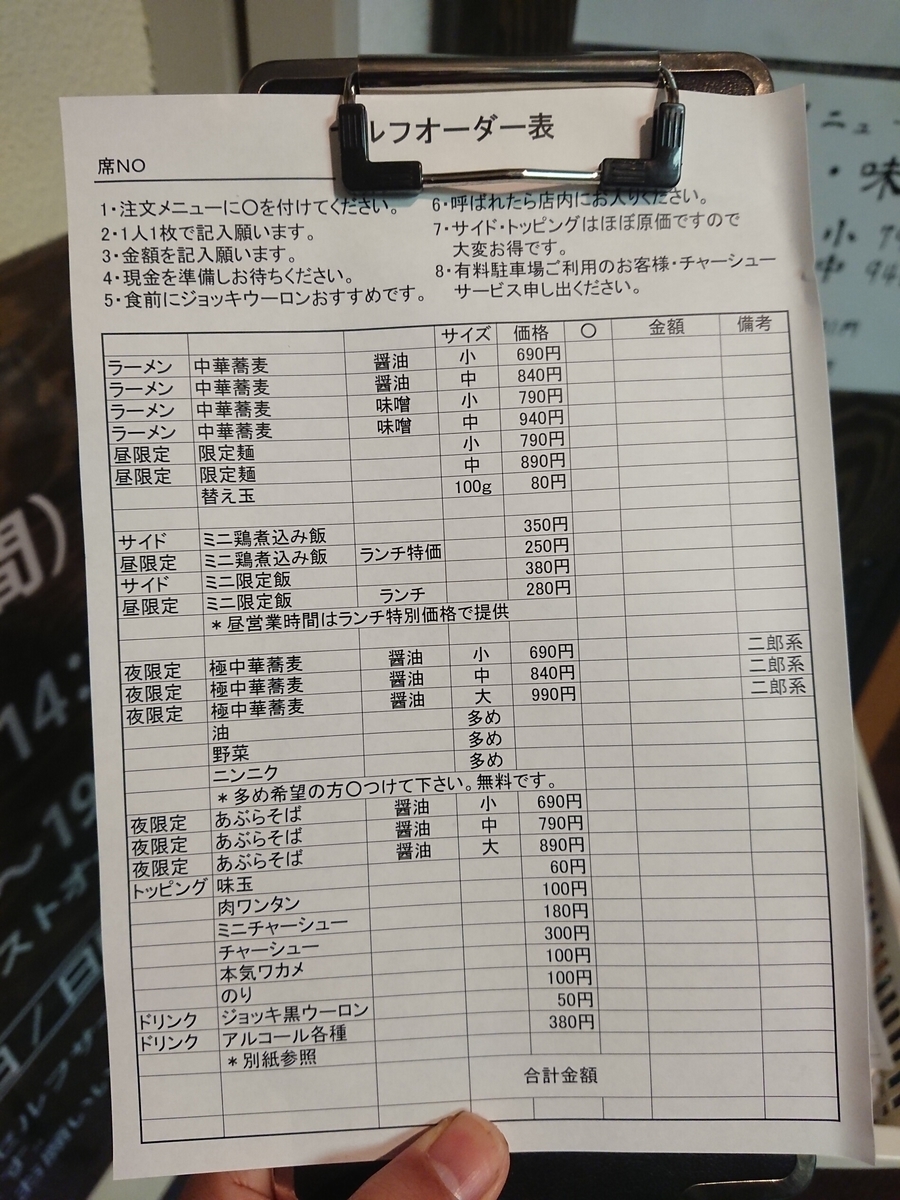 ルフオーダー表
席NO
1・注文メニューに〇を付けてください。
2・1人1枚で記入願います。
3・金額を記入願います。
4・現金を準備しお待ちください。
5・食前にジョッキウーロンおすすめです。
6・呼ばれたら店内にお入りください。
7・サイド・トッピングはほぼ原価ですので
大変お得です。
8・有料駐車場ご利用のお客様・チャーシュー
サービス申し出ください。
サイズ 価格 〇 金額 備考
ラーメン 中華蕎麦 醤油 小 690円
ラーメン 中華蕎麦 醤油 中 840円
ラーメン 中華蕎麦 味噌 小 790円
ラーメン 中華蕎麦 味噌 中 940円
昼限定 限定麺 小 790円
昼限定 限定麺 中 890円
替え玉 100g 80円
サイド ミニ鶏煮込み飯 350円
昼限定 ミニ鶏煮込み飯 ランチ特価 250円
サイド ミニ限定飯 380円
昼限定 ミニ限定飯 ランチ 280円
＊昼営業時間はランチ特別価格で提供
夜限定 極中華蕎麦 醤油 小 690円 二郎系
夜限定 極中華蕎麦 醤油 中 840円 二郎系
夜限定 極中華蕎麦 醤油 大 990円 二郎系
油 多め
野菜 多め
ニンニク 多め
＊多め希望の方〇つけて下さい。無料です。
夜限定 あぶらそば 醤油 小 690円
夜限定 あぶらそば 醤油 中 790円
夜限定 あぶらそば 醤油 大 890円
トッピング 味玉 60円
肉ワンタン 100円
ミニチャーシュー 180円
チャーシュー 300円
本気ワカメ 100円
のり 100円
ドリンク ジョッキ黒ウーロン 50円
ドリンク アルコール各種 380円
＊別紙参照
合計金額
ニュ
・味
小
中 94
間)
14:
～19
ストオ